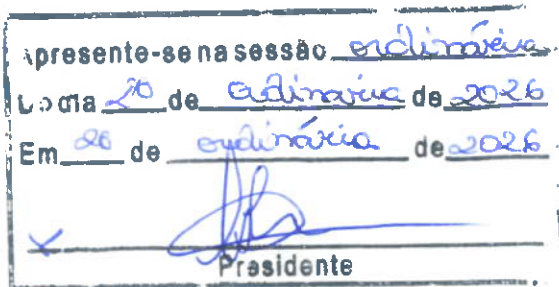 Apresente-se na sessão ordinária
Do dia 20 de ordinária de 2026
Em 20 de ordinária de 2026
Presidente